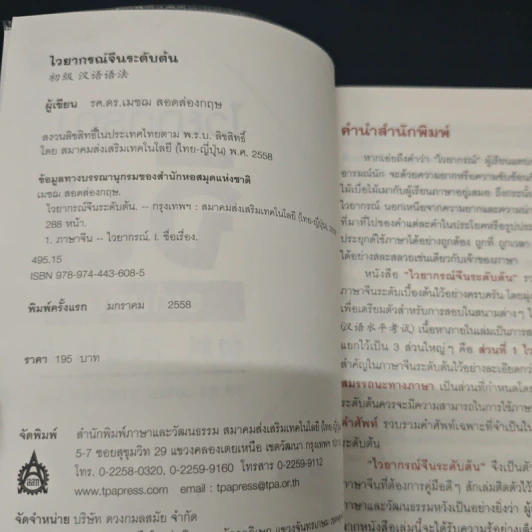 ไวยากรณ์จีนระดับต้น
初级 汉语语法
ผู้เขียน รศ.ดร.เมชฌ สอดส่องกฤษ
สงวนลิขสิทธิ์ในประเทศไทยตาม พ.ร.บ. ลิขสิทธิ์
โดย สมาคมส่งเสริมเทคโนโลยี (ไทย-ญี่ปุ่น) พ.ศ. 2558
ข้อมูลทางบรรณานุกรมของสำนักหอสมุดแห่งชาติ
เมชฌ สอดส่องกฤษ.
ไวยากรณ์จีนระดับต้น. -- กรุงเทพฯ : สมาคมส่งเสริมเทคโนโลยี (ไทย-ญี่ปุ่น), 2558.
288 หน้า.
1. ภาษาจีน -- ไวยากรณ์. I. ชื่อเรื่อง.
495.15
ISBN 978-974-443-608-5
พิมพ์ครั้งแรก มกราคม 2558
ราคา 195 บาท
จัดพิมพ์ สำนักพิมพ์ภาษาและวัฒนธรรม สมาคมส่งเสริมเทคโนโลยี (ไทย-ญี่ปุ่น)
5-7 ซอยสุขุมวิท 29 แขวงคลองเตยเหนือ เขตวัฒนา กรุงเทพฯ
โทร. 0-2258-0320, 0-2259-9160 โทรสาร 0-2259-9112
www.tpapress.com email : tpapress@tpa.or.th
จัดจำหน่าย บริษัท ดวงกมลสมัย จำกัด
คำนำสำนักพิมพ์
หากเอ่ยถึงคำว่า "ไวยากรณ์" ผู้เรียน
อารมณ์นัก จะด้วยความยากหรือความซับซ้อน
ไม้เบื่อไม้เมากับผู้เรียนภาษาอยู่เสมอ
ไวยากรณ์ นอกเหนือจากความยากและความ
ที่มาที่ไปของคำแต่ละคำในประโยคหรือรูป
ประยุกต์ใช้ภาษาได้อย่างถูกต้อง ถูกที่ ถูกเวลา
ได้อย่างสละสลวยเช่นเดียวกับเจ้าของภาษา
หนังสือ "ไวยากรณ์จีนระดับต้น"
ภาษาจีนระดับเบื้องต้นไว้อย่างครบครัน โดย
เพื่อเตรียมตัวสำหรับการสอบในสนามต่างๆ
(汉语水平考试) เนื้อหาภายในเล่มเป็นการ
แยกไว้เป็น 3 ส่วนใหญ่ๆ คือ ส่วนที่ 1
สำคัญในภาษาจีนระดับต้นไว้อย่างละเอียด
สมรรถนะทางภาษา เป็นส่วนที่กำหนดโดย
ระดับต้นควรจะมีความสามารถในการใช้ภาษา
คำศัพท์ รวบรวมคำศัพท์เฉพาะที่จำเป็นใน
ระดับต้น
"ไวยากรณ์จีนระดับต้น" จึงเป็น
ภาษาจีนที่ต้องการคู่มือดีๆ สักเล่มติดตัวไว้
ภาษาและวัฒนธรรมหวังเป็นอย่างยิ่งว่า
หนังสือเล่มนี้จะได้รับความรู้อย่าง